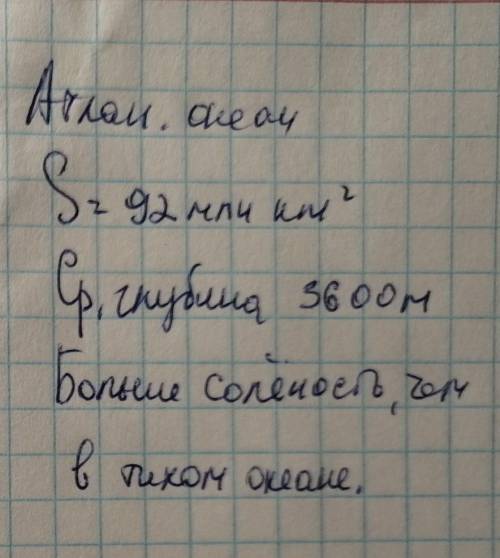 Атлан. океан
S = 92 млн км²
Ср. глубина 3600м
Больше солёность, чем
в тихом океане.